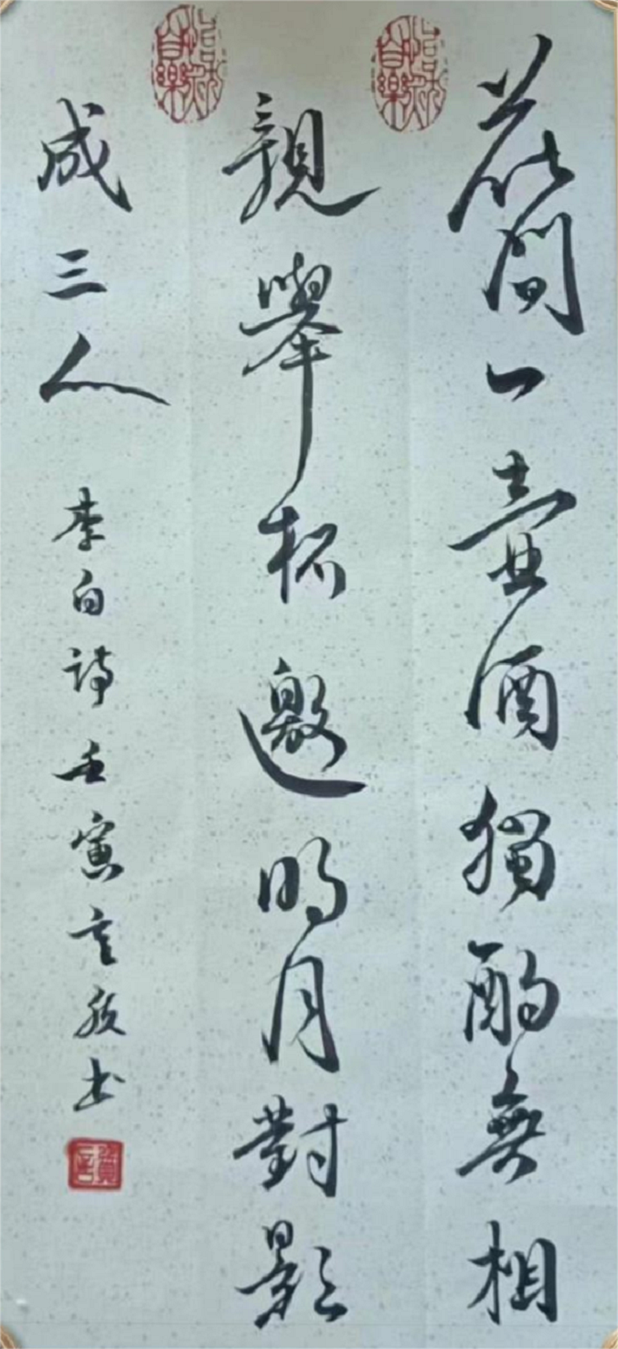 花間一壺酒獨酌無相
親舉杯邀明月對影
成三人 李白詩壬寅言殷书